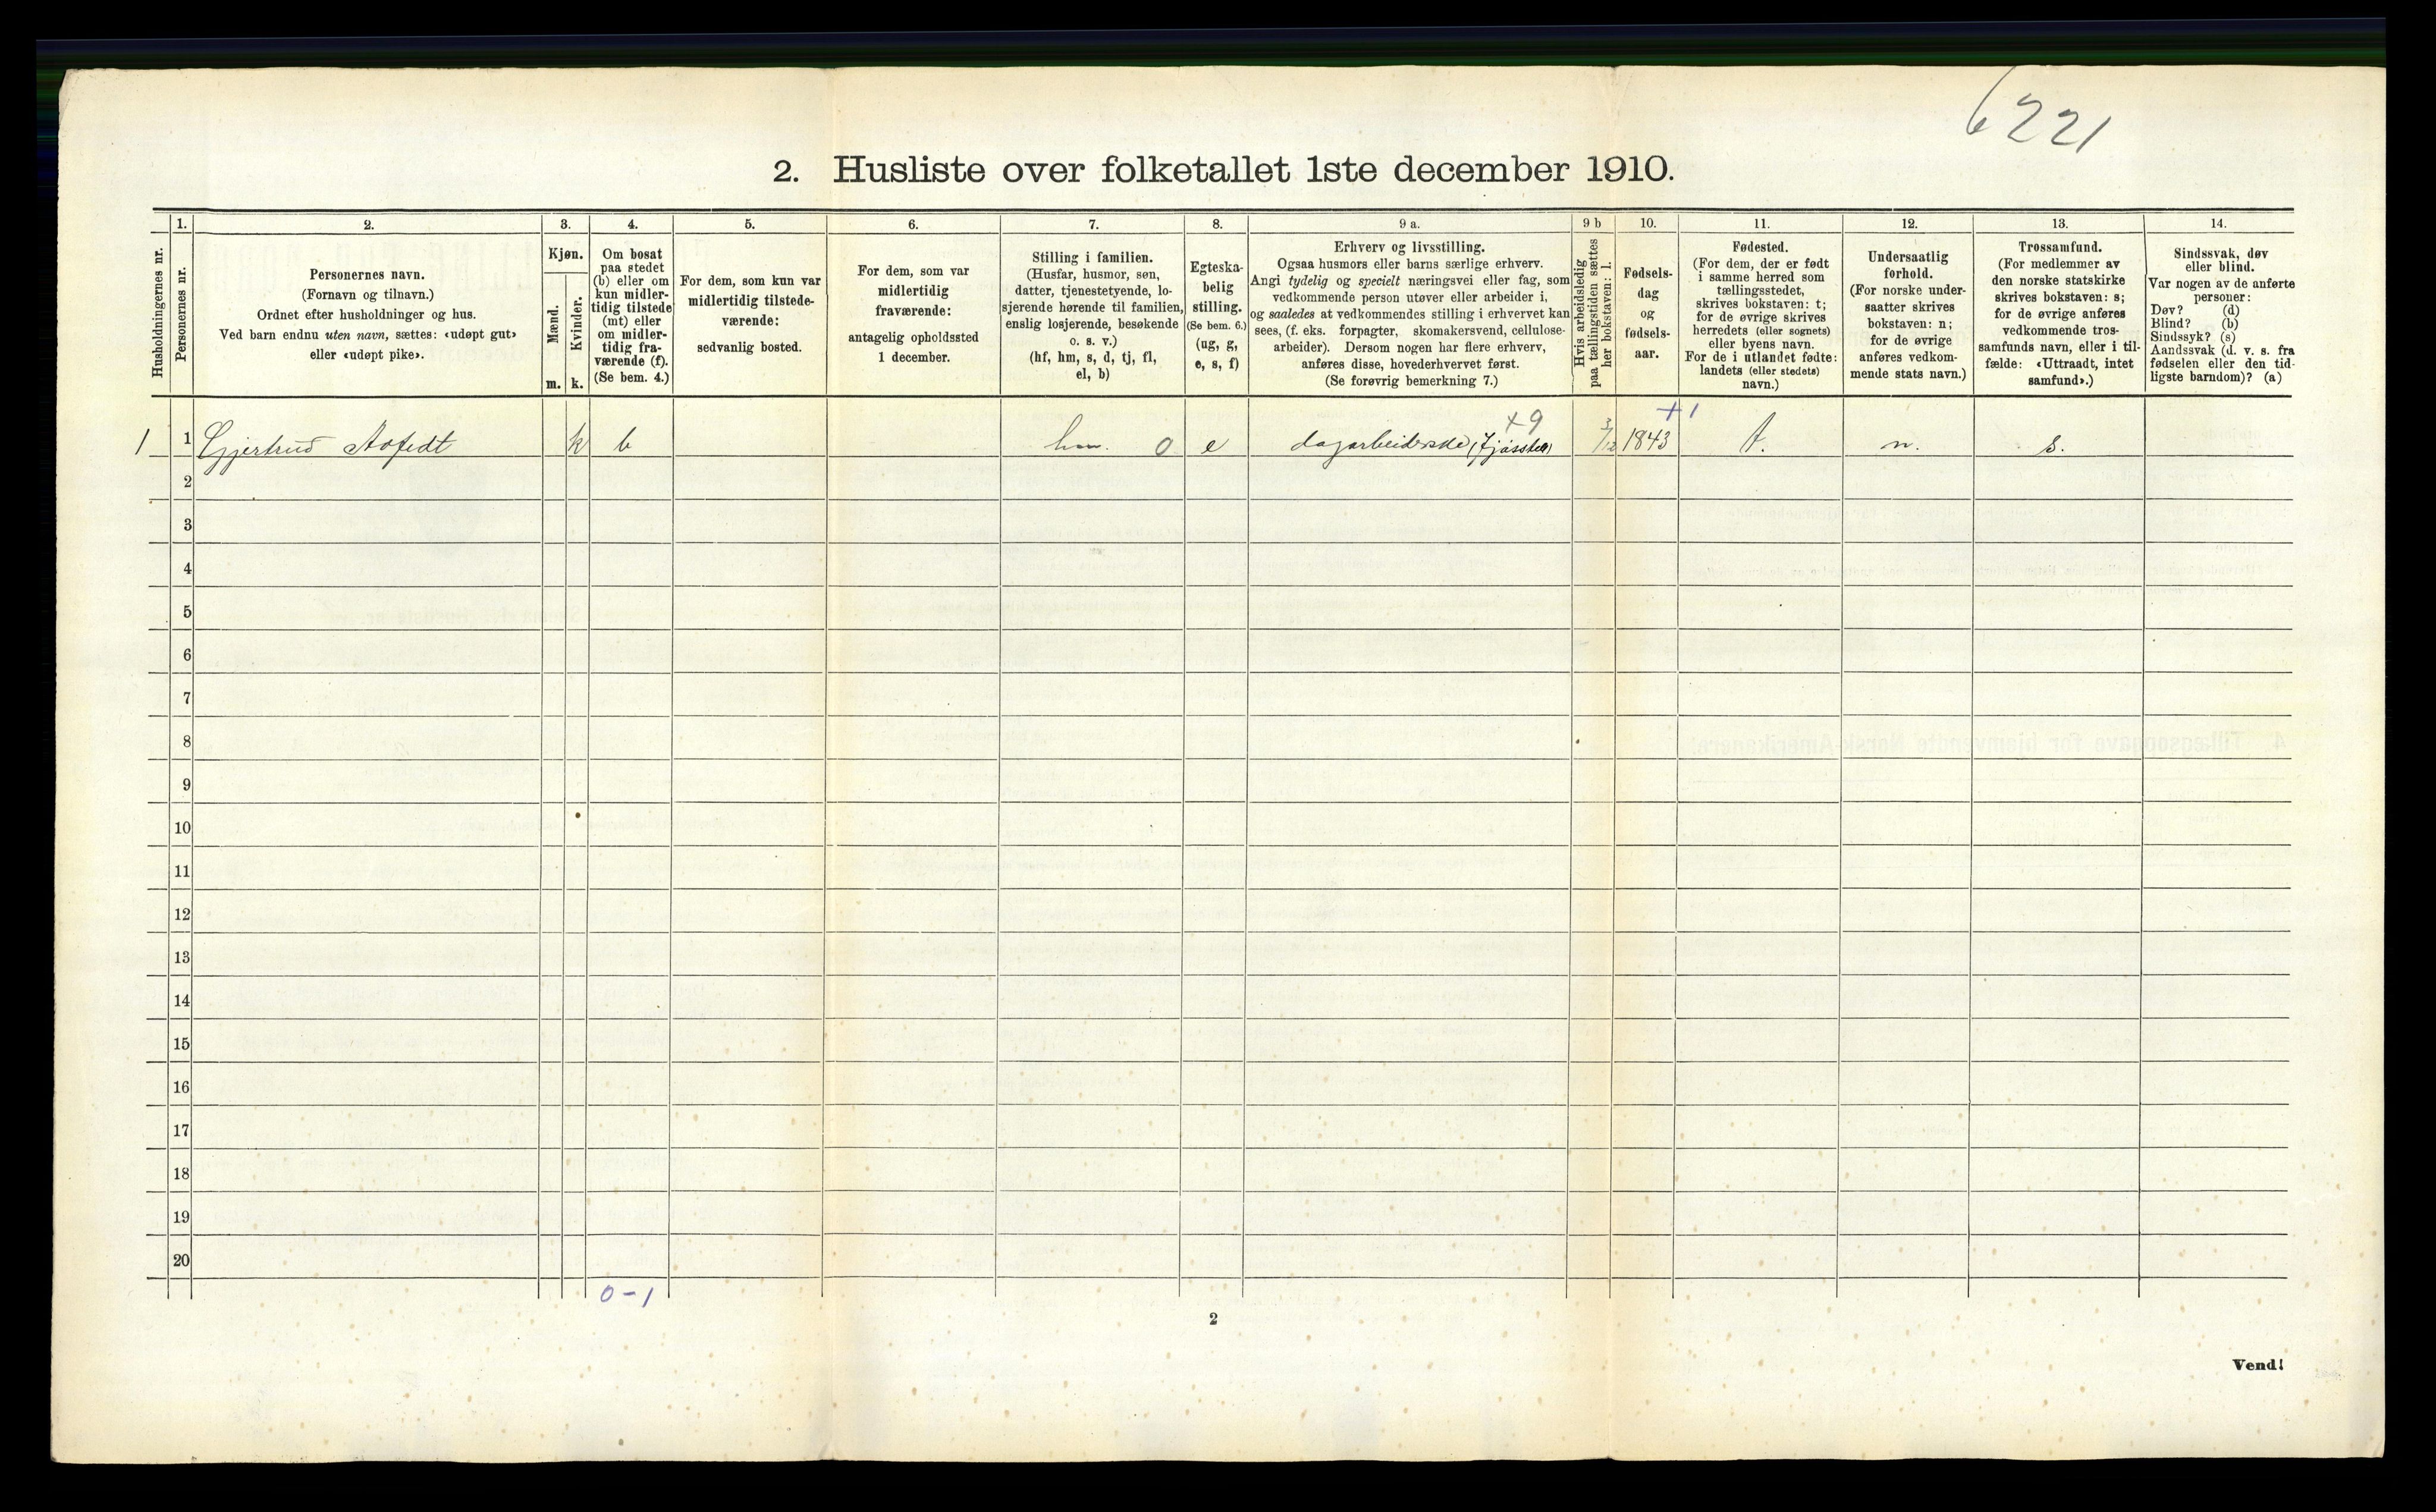 6221
2. Husliste over folketallet 1ste december 1910.
Husholdningernes nr.
1.
Personernes nr.
2.
Personernes navn.
(Fornavn og tilnavn.)
Ordnet efter husholdninger og hus.
Ved barn endnu uten navn, sættes: «udøpt gut»
eller «udøpt pike».
3.
Kjøn.
Mænd.
Kvinder.
m. k.
4.
Om bosat
paa stedet
(b) eller om
kun midler-
tidig tilstede
(mt) eller
om midler-
tidig fra-
værende (f).
(Se bem. 4.)
5.
For dem, som kun var
midlertidig tilstede-
værende:
sedvanlig bosted.
6.
For dem, som var
midlertidig
fraværende:
antagelig opholdssted
1 december.
7.
Stilling i familien.
(Husfar, husmor, søn,
datter, tjenestetyende, lo-
sjerende hørende til familien,
enslig losjerende, besøkende
o. s. v.)
(hf, hm, s, d, tj, fl,
el, b)
8.
Egteska-
belig
stilling.
(Se bem. 6.)
(ug, g,
e, s, f)
9 a.
Erhverv og livsstilling.
Ogsaa husmors eller barns særlige erhverv.
Angi tydelig og specielt næringsvei eller fag, som
vedkommende person utøver eller arbeider i,
og saaledes at vedkommendes stilling i erhvervet kan
sees, (f. eks. forpagter, skomakersvend, cellulose-
arbeider). Dersom nogen har flere erhverv,
anføres disse, hovederhvervet først.
(Se forøvrig bemerkning 7.)
9 b
Hvis arbeidsledig
paa tællingstiden sættes
her bokstaven: l.
10.
Fødsels-
dag
og
fødsels-
aar.
11.
Fødested.
(For dem, der er født
i samme herred som
tællingsstedet,
skrives bokstaven: t;
for de øvrige skrives
herredets (eller sognets)
eller byens navn.
For de i utlandet fødte:
landets (eller stedets)
navn.)
12.
Undersaatlig
forhold.
(For norske under-
saatter skrives
bokstaven: n;
for de øvrige
anføres vedkom-
mende stats navn.)
13.
Trossamfund.
(For medlemmer av
den norske statskirke
skrives bokstaven: s;
for de øvrige anføres
vedkommende tros-
samfunds navn, eller i til-
fælde: «Uttraadt, intet
samfund».)
14.
Sindssvak, døv
eller blind.
Var nogen av de anførte
personer:
Døv? (d)
Blind? (b)
Sindssyk? (s)
Aandssvak (d. v. s. fra
fødselen eller den tid-
ligste barndom)? (a)
+9 +1
1 1 Gjertrud k b hm. 0 e dagarbeiderske 3/12 1843 t. n. s.
2
3
4
5
6
7
8
9
10
11
12
13
14
15
16
17
18
19
20
0-1
2
Vend!